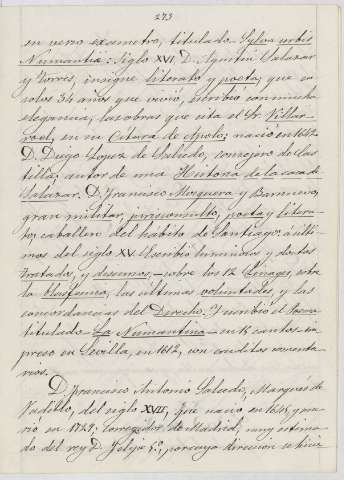 273
en verso exametro, titulado Sylva urbis
Numantia: Siglo XVI. D. Agustin Salazar
y Torres, insigne literato y poeta, que en
solos 34 años que vivió, escribió con mucha
elegancia, las obras que cita el Sr. Villar-
roel, en su Citara de Apolo; nacio en 1642.
D. Diego Lopez de Salcedo, consejero de Cas-
tilla, autor de una Historia de la casa de
Salazar. D. Francisco Mosquera y Barnuevo,
gran militar, jurisconsulto, poeta y litera-
to, caballero del habito de Santiago, á ulti-
mos del siglo XV. Escribio luminosos y doctos
tratados, y discursos, sobre los 12 Linages, sobre
la , las últimas voluntades, y las
concordancias del Derecho. Y escribio el Poema
titulado La Numantina en 15 cantos im-
preso en Sevilla, en 1612, con eruditos comenta-
rios.
D. Francisco Antonio Salcedo, Marqués de
Vadillo, del siglo XVII, que nacio en 1646, y mu-
rió en 1729; Corregidor de Madrid, muy estima-
do del rey D. Felipe 5.º, por cuya direccion se hicie